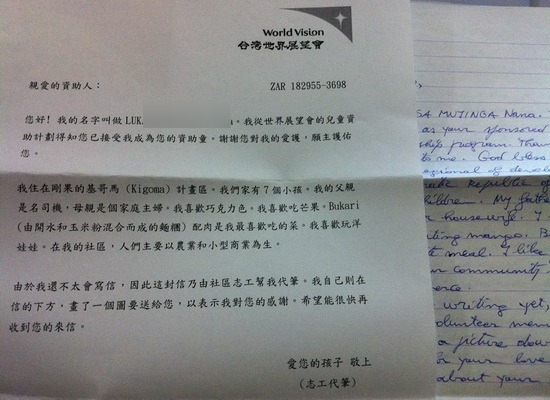 World Vision
台灣世界展望會
親愛的資助人：
ZAR 182955-3698
您好! 我的名字叫做 LUK. 我從世界展望會的兒童資
助計劃得知您已接受我成為您的資助童。謝謝您對我的愛護，願主護佑
您。
我住在剛果的基哥馬 (Kigoma) 計畫區。我們家有7個小孩。我的父親
是名司機，母親是個家庭主婦。我喜歡巧克力色。我喜歡吃芒果。Bukari
(由開水和玉米粉混合而成的麵糰) 配肉是我最喜歡吃的菜。我喜歡玩洋
娃娃。在我的社區，人們主要以農業和小型商業為生。
由於我還不太會寫信，因此這封信乃由社區志工幫我代筆。我自己則在
信的下方，畫了一個圖要送給您，以表示我對您的感謝。希望能很快再
收到您的來信。
愛您的孩子 敬上
(志工代筆)
SA MUJINGA Nana.
as your sponsored
ship program. Than
to me. God bless
children. My fathe
housewife. I
ting mangos. B
meal. I like
r community
writing yet,
olunteer mem
a picture dow
for your love
about your